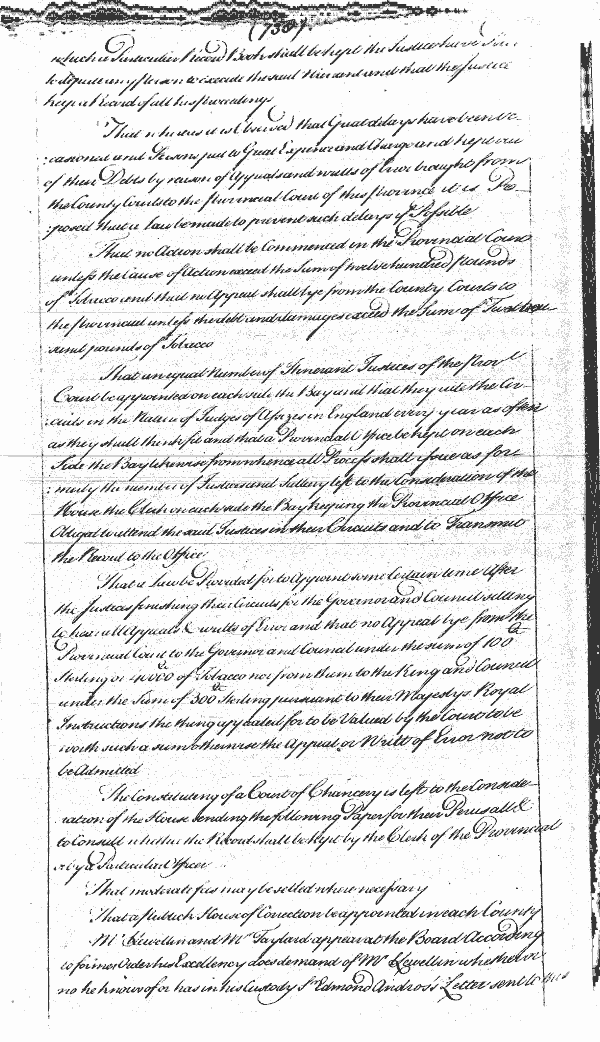 (738)
which a Particular Record Book shall be kept the Justice have
to depute any person to execute the said Warrant and that the Justice
keep a Record of all his proceedings
That whereas it is Observed that Great delays have been oc-
:casioned and Persons put to Great Expence and Charge and kept out
of their Debts by reason of Appeals and writts of Error brought from
the County Courts to the Provincial Court of this Province it is Pro-
:posed that a Law be made to prevent such delays if Possible
That no Action shall be Commenced in the Provincial Court
unless the Cause of Action exceed the Sum of twelve hundred pounds
of Tobacco and that no Appeal shall lye from the County Courts to
the Provincial unless the debt and damages exceed the Sum of Twelve
pounds of Tobacco
That an equal Number of Itinerant Justices of the Provl
Court be appointed on each side the Bay and that they ride the Cir-
:cuits in the Nature of Judges of Assizes in England every year as often
as they shall think fit and that a Provincial Office be kept on each
Side the Bay likewise from whence all Process shall issue as for-
:merly the number of Justices and Sallery left to the Consideration of the
House the Clerk on each side the Bay keeping the Provincial Office
Obliged to attend the said Justices in their Circuits and to Transmit
the Record to the Office
That a Law be Provided for to Appoint some Certain time After
the Justices finishing their Circuits for the Governor and Council sitting
to hear all Appeals & writts of Error and that no Appeal lye from the
Provincial Court to the Governor and Council under the sum of 100 ℔
Sterling or 40000 of Tobacco nor from them to the King and Council
under the Sum of 300 ℔ Sterling pursuant to their Majestys Royal
Instructions the thing appealed for to be Valued by the Court to be
worth such a sum otherwise the Appeal or Writt of Error not to
be Admitted
The Constituting of a Court of Chancery is left to the Conside-
ration of the House sending the following Paper for their Perusall &
to Consult whether the Record shall be kept by the Clerk of the Provincial
or by a Particular Officer
That moderate fees may be settled where necessary
That a Publick House of Correction be appointed in each County
Mr Llewellin and Mr Taylard appear at the Board According
to former Order his Excellency does demand of Mr Llewellin whether or
no he knows of or has in his Custody Sr Edmond Andros's Letter sent to